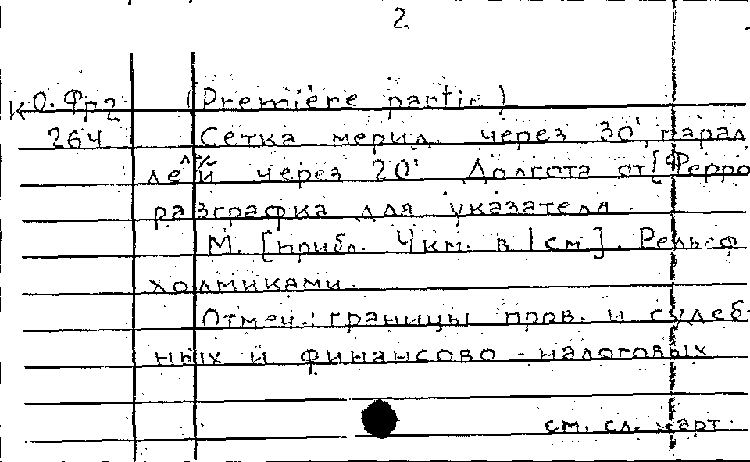 2
К О. Фр2 (Première partie)
264 Сетка мерид. через 30', парал
лелей через 20' Долгота от [Ферро
разграфка для указателя.
М. [прибл. 4км. в 1см]. Рельеф
холмиками.
Отмеч.: границы пров. и судеб-
ных и финансово-налоговых
см. сл. карт.